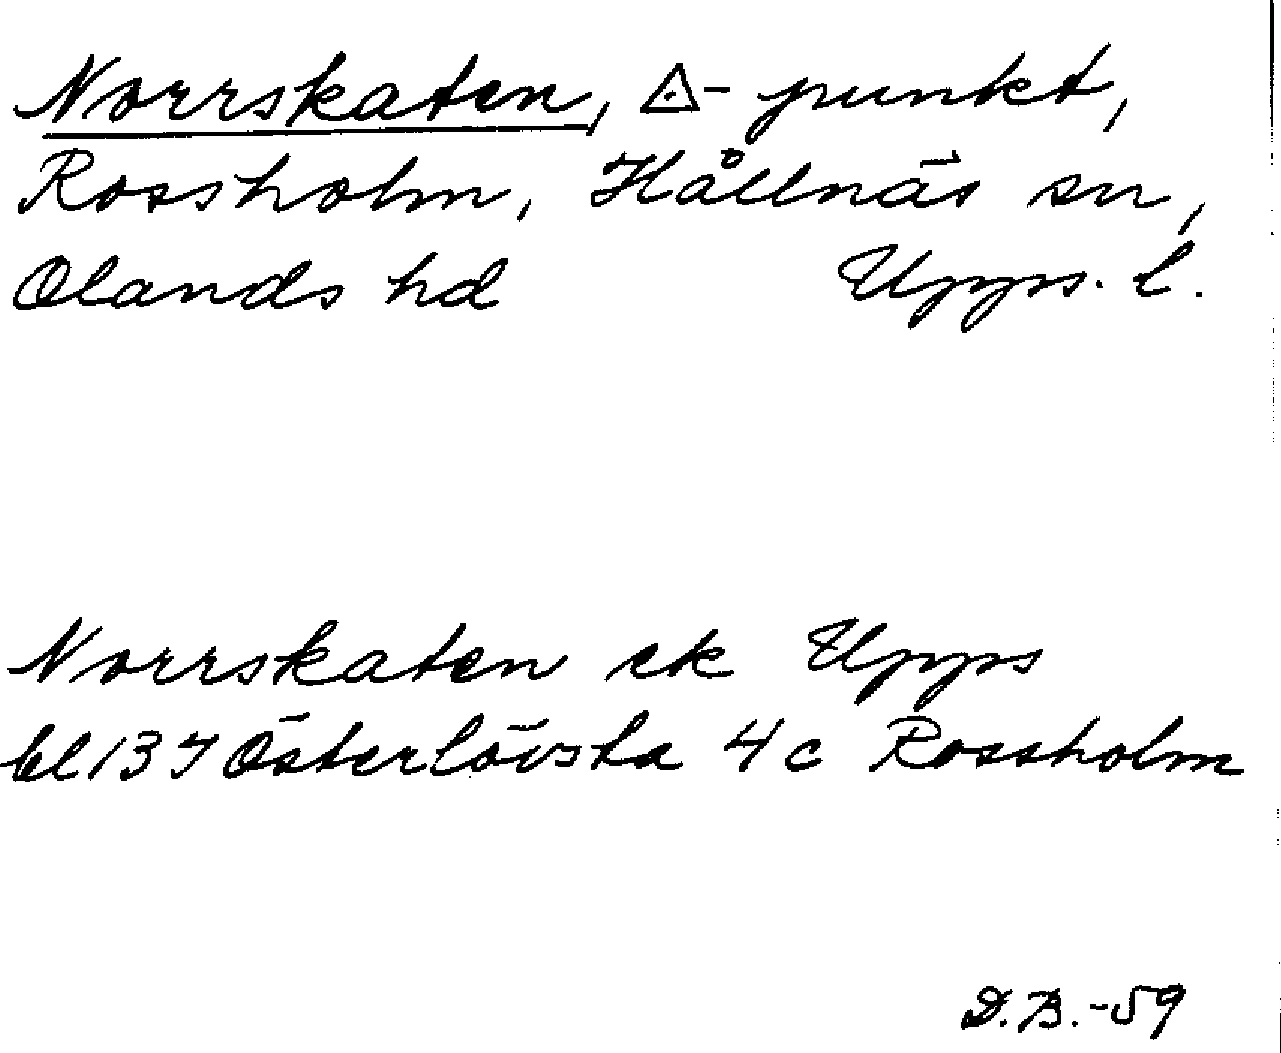 Norrskaten, △-punkt,
Rossholm, Hållnäs sn,
Olands hd Upps. l.
Norrskaten ek Upps
bl 137 Österlövsta 4c Rossholm
D.B.-59